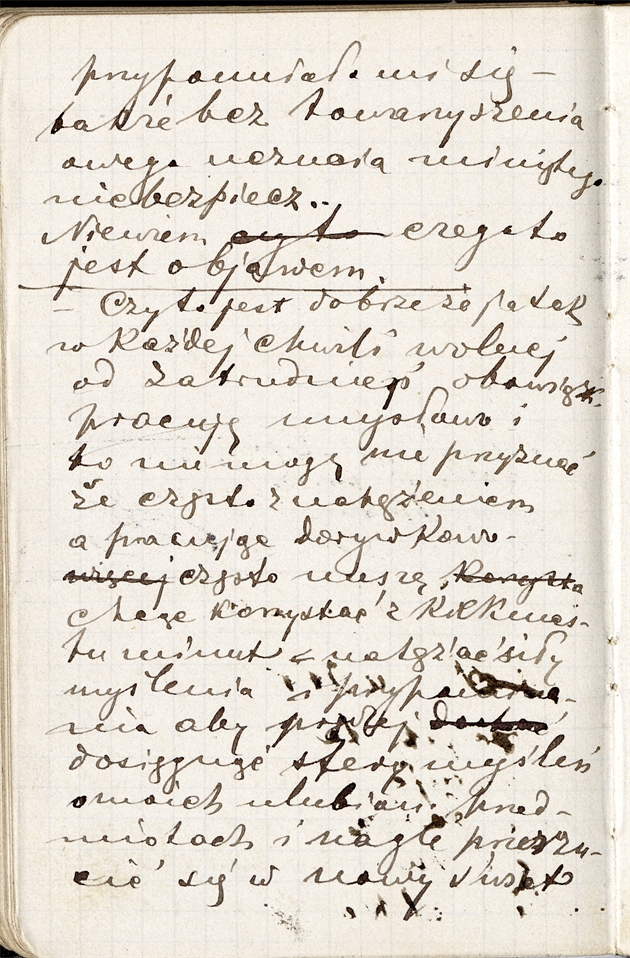 przypomniało mi się –
także bez towarzyszenia
owego uczucia minionego
niebezpiecz..
Niewiem czy to czego to
jest objawem.
– Czyto jest dobrze że ja tak
w każdej chwili wolnej
od zatrudnień obowiązk.
pracuję umysłowo i
to nie mogę nie przyznać
że często z natężeniem
a pracując dorywkowo
więcej często muszę
chcąc korzystać z kilkunas-
tu minut natężać siły
myślenia i przypomina-
nia aby prędzej
dosięgnąć sfery myśleń
o moich ulubion. przed-
miotach i nagle przerzu-
cić się w nowy świat